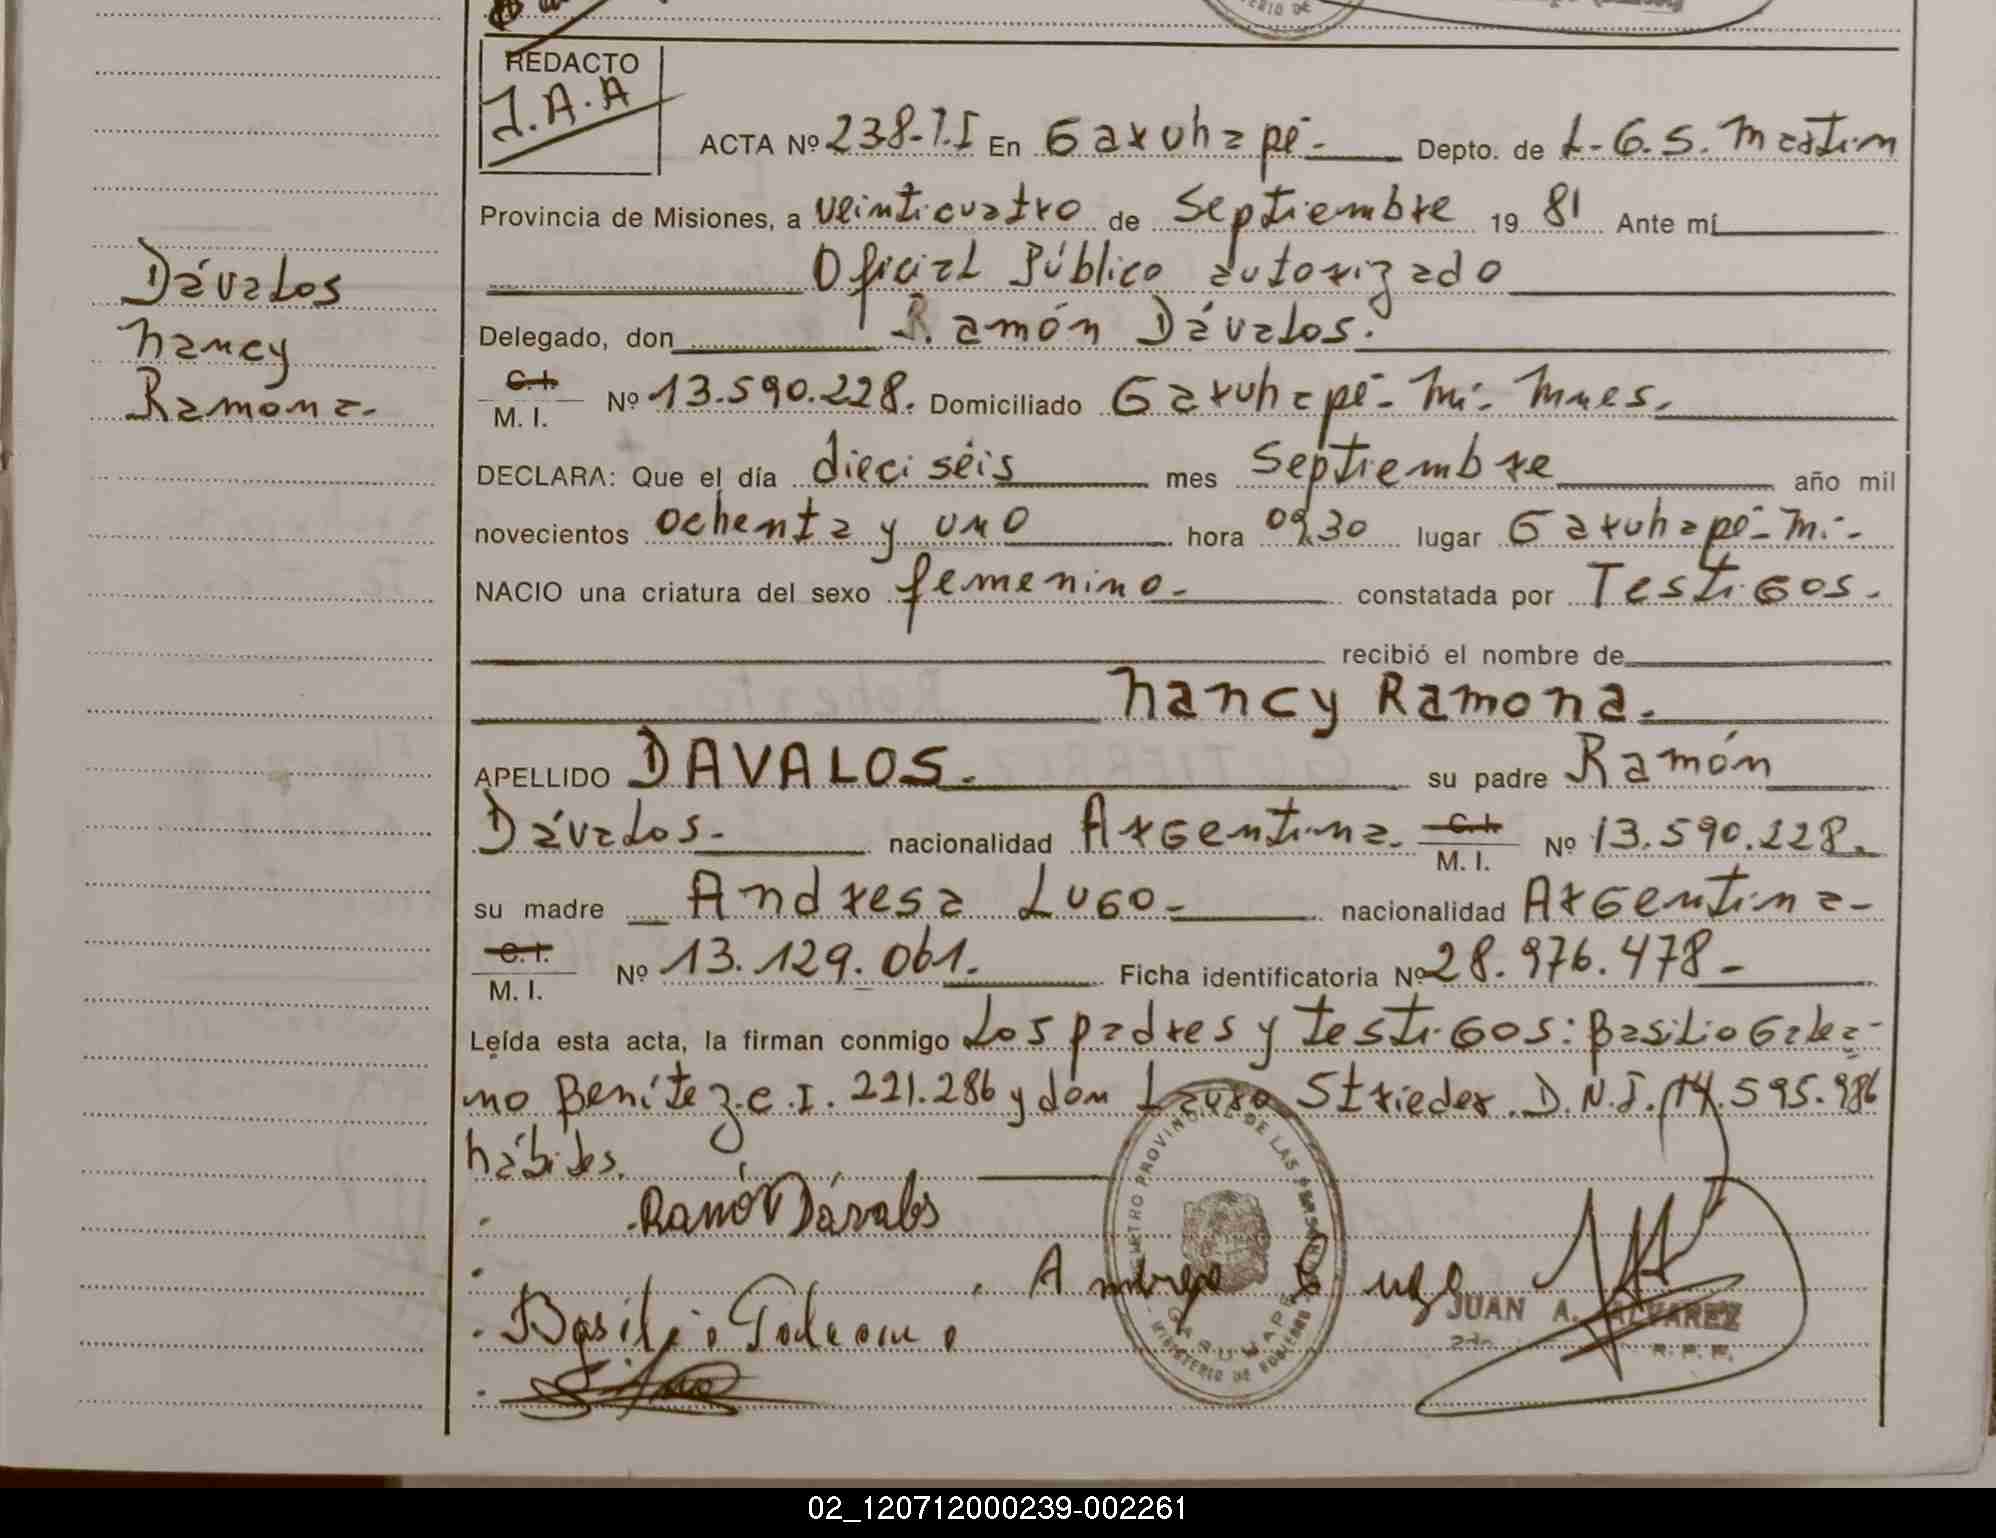 REDACTO
J.A.A
ACTA Nº 238-T.I En Garuhapé- Depto. de L-G.S. Martin
Provincia de Misiones, a veinticuatro de Septiembre 19 81 Ante mí
Oficial Público autorizado
Delegado, don Ramón Dávalos.
C.I. M. I. Nº 13.590.228. Domiciliado Garuhapé- Mí- Mnes.
DECLARA: Que el día dieciséis mes Septiembre año mil
novecientos ochenta y uno hora 09,30 lugar Garuhapé-Mí-
NACIO una criatura del sexo femenino- constatada por Testigos.
recibió el nombre de
Nancy Ramona.
APELLIDO DAVALOS. su padre Ramón
Dávalos- nacionalidad Argentina. C.I. M. I. Nº 13.590.228.
su madre Andresa Lugo- nacionalidad Argentina-
C.I. M. I. Nº 13.129.061. Ficha identificatoria Nº 28.976.478-
Leída esta acta, la firman conmigo Los padres y testigos: Basilio Galea-
no Benítez C.I. 221.286 y dón Lauro Strieder. D.N.I. 14.595.986
hábiles.
Dávalos
Nancy
Ramona-
Ramón Dávalos
Basilio Galeano
JUAN A. ALVAREZ
REGISTRO PROVINCIAL DE LAS PERSONAS
GARUHAPE
MINISTERIO DE GOBIERNO
02_120712000239-002261